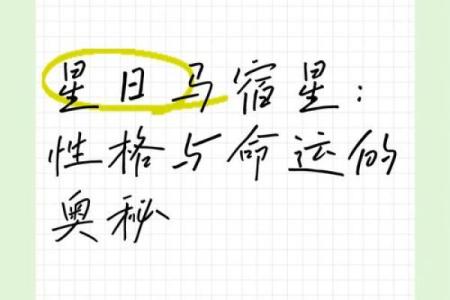 星日马宿星：
性格与命运的
奥秘